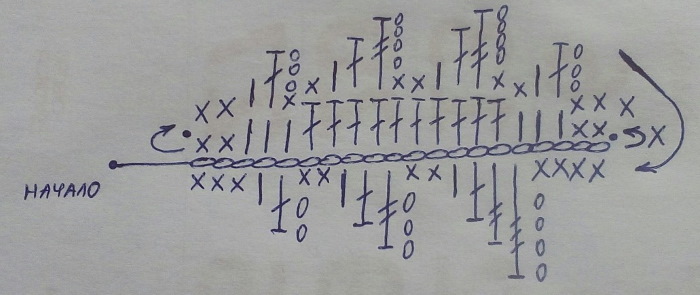 НАЧАЛО